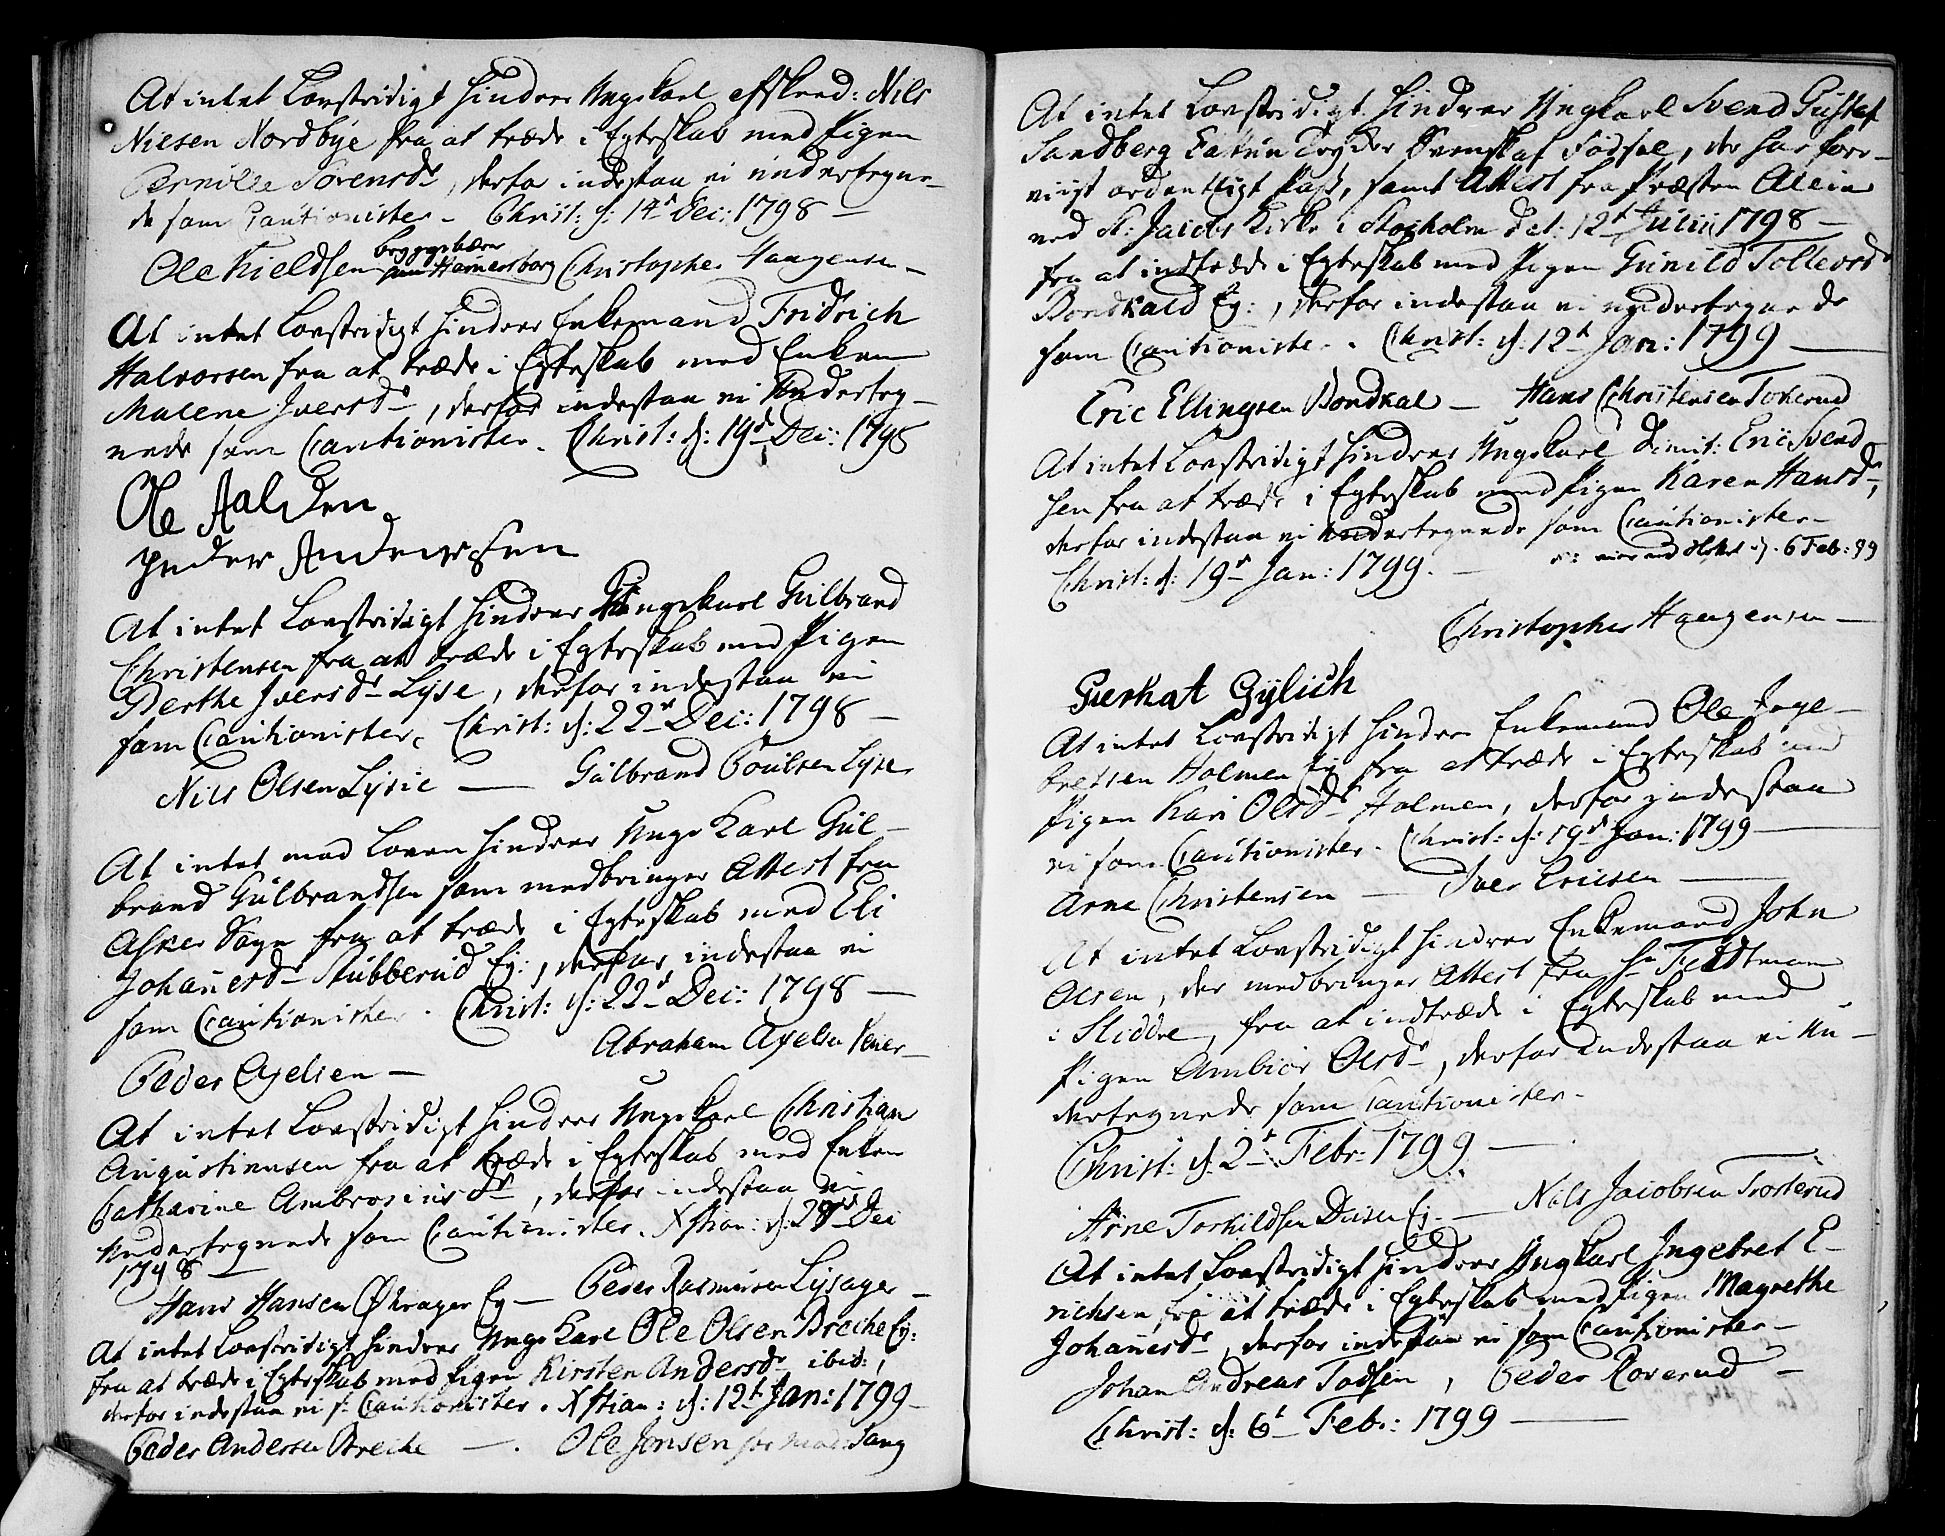 At intet Lovstridigt hindrer Ungekarl afskeed: Nils
Nielsen Nordbÿe fra at træde i Egteskab med Pigen
Pernille Sörensdr, derfor indestaa vi undertegne-
de som Cautionister - Christ: d: 14de Dec: 1798 -
Ole Kieldsen Hamersborg Christopher Haagensen -
At intet Lovstridigt hindrer Enkemand Fridrich
Halvorsen fra at træde i Egteskab med Enken
Malene Iversdr, derfor indestaa vi Underteg-
nede som Cautionister. Christ: d: 19de Dec: 1798
Ole Aalden
Peder Andersen
At intet Lovstridigt hindrer Ungekarl Gülbrand
Christensen fra at træde i Egteskab med Pigen
Berthe Iversdr Lÿse, derfor indestaa vi
som Cautionister. Christ: d: 22de Dec: 1798 -
Nils Olsen Lÿsie - Gülbrand Poulsen Lÿse
At intet med Loven hindrer Unge Karl Gül-
brand Gülbrandsen som medbringer Attest fra
Asker Sogn fra at træde i Egteskab med Eli
Johanesdr Stubberud Ej:, derfor indestaa vi
som Cautionister. Christ: d: 22de Dec: 1798 -
Abraham Axelsen
Peder Ajelsen -
At intet Lovstridigt hindrer Ungekarl Christian
Augustinusen fra at træde i Egteskab med Enken
Catharine Ambrosiusdr, derfor indestaa vi
undertegnede som Cautionister. Xstian: d: 28de Dec
1798 -
Hans Hansen Økrager Ej - Peder Rasmusen Lÿsager -
At intet Lovstridigt hindrer Unge Karl Ole Olsen Breche Ej:
fra at træde i Egteskab med Pigen Kirsten Andersdr ibid:,
derfor indestaa vi s: Cautionister. Xstian: d: 12te Jan: 1799 -
Peder Andersen Breche - . Ole Jonsen
At intet Lovstridigt hindrer Ungkarl Svend Gustaf
Sandberg Cattun Trÿkker Svensk af Födsel, der har fore-
viist ordentligt Pass, samt Attest fra Præsten
ved St: Jacobs Kirke i Stocholm dat: 12te Julii 1798 -
fra at indtræde i Egteskab med Pigen Gunild Tollevsdr
Bondkald Ej:, derfor indestaa vi undertegnede
som Cautionister. Christ: d: 12te Jan: 1799 -
Eric Ellingsen Bondkal - Hans Christensen Tokerud
At intet Lovstridigt hindrer Ungekarl Dimit: Eric Svend-
sen fra at træde i Egteskab med Pigen Karen Hansdr,
derfor indestaa vi undertegnede som Cautionister -
d. 6 Feb: 99
Christ: d: 19de Jan: 1799. -
Christopher Haagensen -
Gerhat Gÿlich
At intet Lovstridigt hindrer Enkemand Ole Inge-
bretsen Holmen Ej fra at træde i Egteskab med
Pigen Kari Olsdr Holmen, derfor indestaa
vi som Cautionister. Christ: d: 19de Jan: 1799 -
Arne Christensen - Iver Ericsen -
At intet Lovstridigt hindrer Enkemand John
Olsen, der medbringer Attest fra Hr Feldtman
i Sliddre, fra at indtræde i Egteskab med
Pigen Ambiör Olsdr, derfor indestaa vi Un-
dertegnede som Cautionister.
Christ: d: 2de Febr: 1799 -
Arne Torkildsen Ej - Nils Jacobsen Trosterud
At intet Lovstridigt hindrer Ungkarl Ingebret E-
richsen fra at træde i Egteskab med Pigen Magrethe
Johanesdr, derfor indestaa vi som Cautionister -
Johan Andreas Todsen, Peder Roverud -
Christ: d: 6te Febr: 1799 -